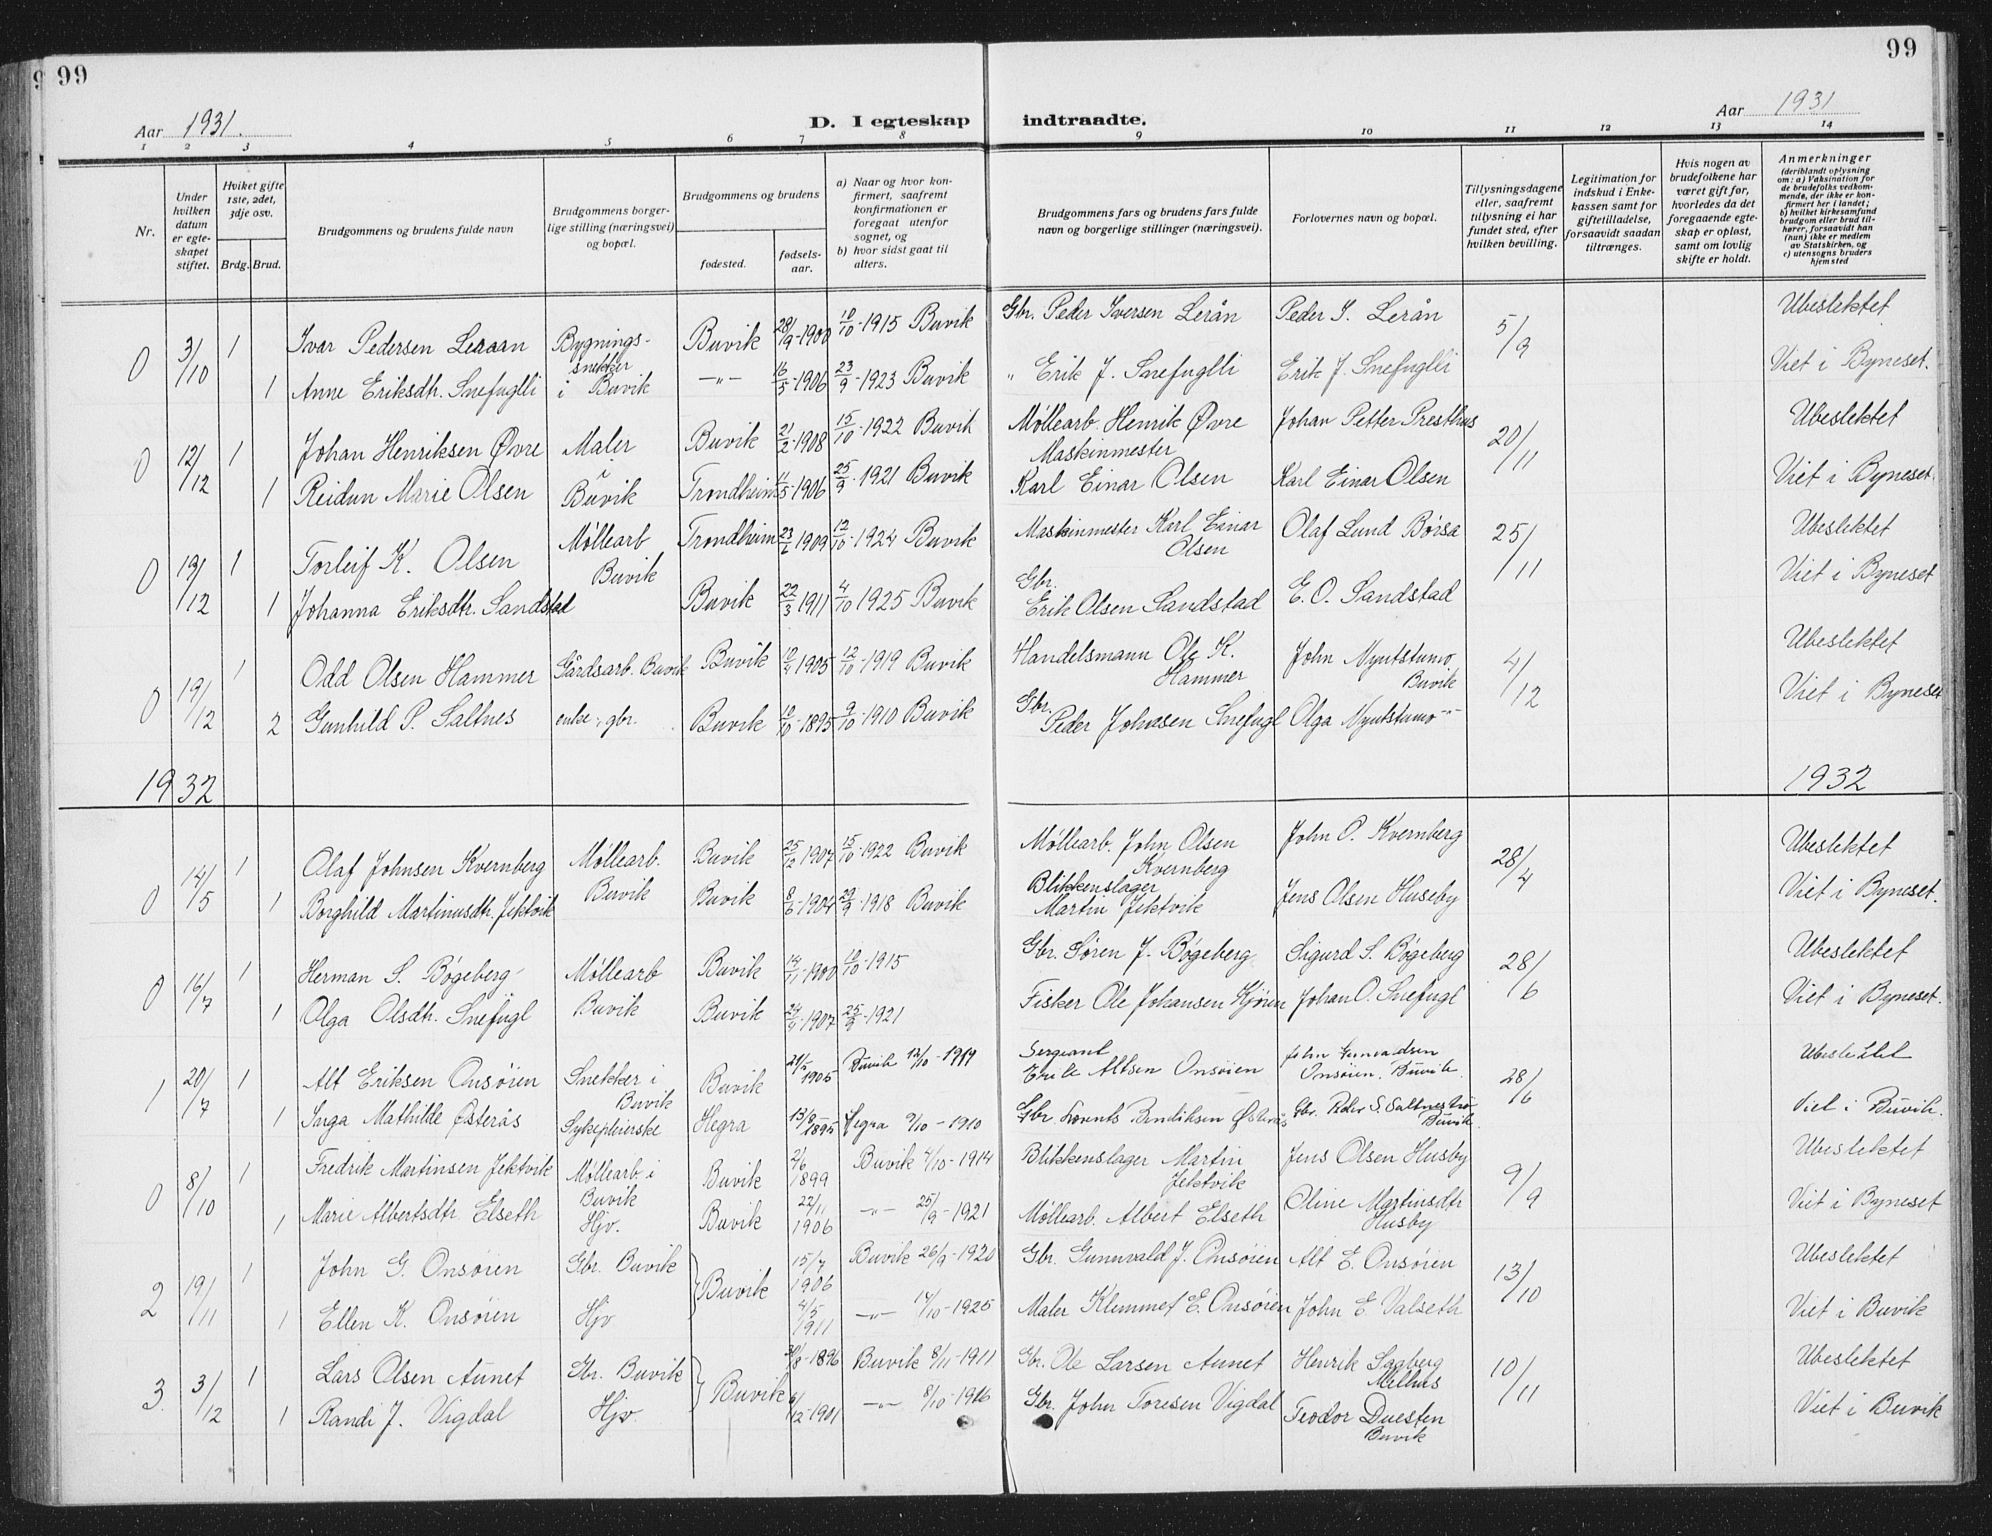 99
99
Aar 1931.
D. I egteskap
indtraadte.
Aar 1931
1 2 3 4 5 6 7 8 9 10 11 12 13 14
Nr.
Under hvilken datum er egteskapet stiftet.
Hviket gifte 1ste, 2det, 3dje osv.
Brdg. Brud.
Brudgommens og brudens fulde navn
Brudgommens borgerlige stilling (næringsvei) og bopæl.
Brudgommens og brudens
fødested.
fødselsaar.
a) Naar og hvor konfirmert, saafremt konfirmationen er foregaat utenfor sognet, og
b) hvor sidst gaat til alters.
Brudgommens fars og brudens fars fulde navn og borgerlige stillinger (næringsvei).
Forlovernes navn og bopæl.
Tillysningsdagene eller, saafremt tillysning ei har fundet sted, efter hvilken bevilling.
Legitimation for indskud i Enkekassen samt for giftetilladelse, forsaavidt saadan tiltrænges.
Hvis nogen av brudefolkene har været gift før, hvorledes da det foregaaende egteskap er opløst, samt om lovlig skifte er holdt.
Anmerkninger
(deriblandt oplysning om: a) Vaksination for de brudefolks vedkommende, der ikke er konfirmert her i landet; b) hvilket kirkesamfund brudgom eller brud tilhører, forsaavidt han (nun) ikke er medlem av Statskirken, og c) utensogns bruders hjemsted
0 3/10 1 Ivar Pedersen Leraan Bygningssnekker Buvik 28/9-1900 10/10-1915 Buvik Gbr. Peder Iversen Lerån Peder I. Lerån 5/9 Ubeslektet
1 Anne Eriksdh. Snefuglli i Buvik —„— 16/5-1906 23/9-1923 Buvik „ Erik J. Snefuglli Erik J. Snefuglli Viet i Byneset.
0 12/12 1 Johan Henriksen Øvre Maler Buvik 21/2-1908 15/10-1922 Buvik Møllearb. Henrik Øvre Johan Petter Presthus 20/11 Ubeslektet
1 Reidun Marie Olsen i Buvik Trondheim 11/5-1906 25/9-1921 Buvik Maskinmester Karl Einar Olsen Karl Einar Olsen Viet i Byneset.
0 19/12 1 Torleif K. Olsen Møllearb Buvik Trondheim 23/6 1909 12/10-1924 Buvik Maskinmester Karl Einar Olsen Olaf Lund Børsa 25/11 Ubeslektet
1 Johanna Eriksdtr. Sandstad Buvik 22/3 1911 4/10 1925 Buvik Gbr. Erik Olsen Sandstad E. O. Sandstad Viet i Byneset
0 19/12 1 Odd Olsen Hammer Gårdsarb. Buvik Buvik 10/4 1905 12/10-1919 Buvik Handelsmann Ole K. Hammer John Nyutstumo Buvik 4/12 Ubeslektet
2 Gunhild P. Saltnes enke, gbr. Buvik 10/10-1895 9/10-1910 Buvik Gbr. Peder Johnsen Snefugl Olga Nyutstumo -„- Viet i Byneset
1932
1932
0 14/5 1 Olaf Johnsen Kvernberg Møllearb. Buvik 25/12-1907 15/10-1922 Buvik Møllearb. John Olsen Kvernberg John O. Kvernberg 28/4 Ubeslektet
1 Borghild Martinusdtr. Jektvik Buvik Buvik 8/6-1904 29/9-1918 Buvik Blikkenslager Martin Jektvik Jens Olsen Huseby Viet i Byneset.
0 16/7 1 Herman S. Bøgeberg Møllearb Buvik 14/11-1900 10/10-1915 Gbr. Søren J. Bøgeberg Sigurd S. Bøgeberg 28/6 Ubeslektet
1 Olga Olsdh. Snefugl Buvik Buvik 24/4-1907 25/9-1921 Fisker Ole Johansen Kjøren Johan O. Snefugl Viet i Byneset.
1 20/7 1 Alt Eriksen Onsøien Snekker i Buvik Buvik 1905 Buvik 12/10-1919 Sergeant Erik Altsen Onsøien John Gunvaldsen Onsøien, Buvik. 28/6 Ubeslektet
1 Inga Mathilde Østerås Sykepleierske Hegra 13/8-1895 Hegra 9/10-1910 Gbr Lorents Bendiksen Østerås Gbr. Peder S. Saltnes Buvik Viet i Buvik.
0 8/10 1 Fredrik Martinsen Jektvik Møllearb. i Buvik Buvik 2/6 1899 Buvik 4/10-1914 Blikkenslager Martin Jektvik Jens Olsen Husby 9/9 Ubeslektet
1 Marie Albertsdtr Elseth Hjv. Buvik 22/11 1906 —„— 25/9-1921 Møllearb. Albert Elseth Oline Martinsdtr Husby Viet i Byneset
2 19/11 1 John G. Onsøien Gbr. Buvik Buvik 15/7 1906 Buvik 26/9-1920 Gbr. Gunnvald J. Onsøien Alt E. Onsøien 13/10 Ubeslektet
1 Ellen K. Onsøien Hjv 4/5 1911 —„— 14/10-1925 Maler Klemmet E. Onsøien John E. Valseth Viet i Buvik
3 3/12 1 Lars Olsen Aunet Gbr. Buvik Buvik 30/8-1896 Buvik 8/11-1911 Gbr. Ole Larsen Aunet Henrik Saaberg Melhus 10/11 Ubeslektet
1 Randi J. Vigdal Hjv. 6/12-1901 —„— 8/10-1916 Gbr. John Toresen Vigdal Teodor Duesten Buvik Viet i Buvik